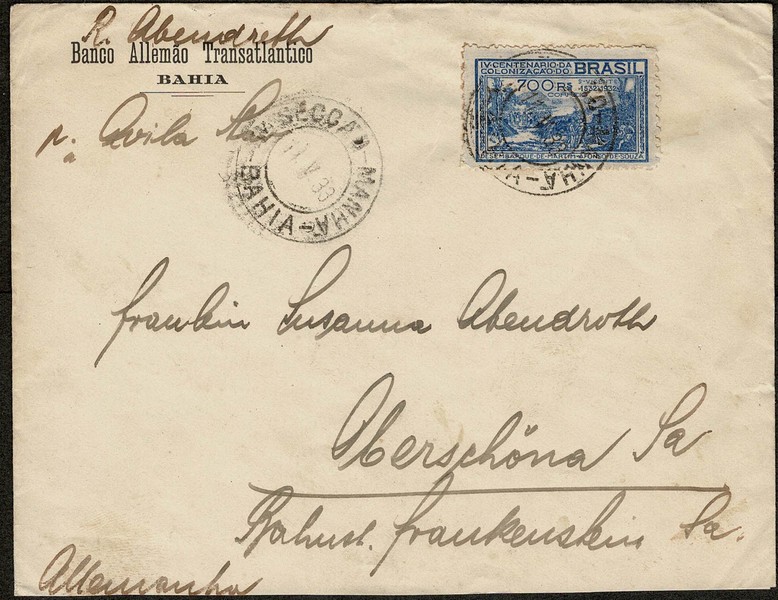 R. Abendroth
Banco Allemão Transatlantico
BAHIA
p. Avila
SECÇÃO - MANHÃ
11 V 38
BAHIA
IV·CENTENARIO·DA COLONIZAÇÃO·DO BRASIL
700 RS
1532-1932
DESEMBARQUE·DE·MARTIM·AFFONSO·DE·SOUZA
fraulein Susanna Abendroth
Oberschöna Sa
Bahnst. frankenstein Sa.
Allemanha